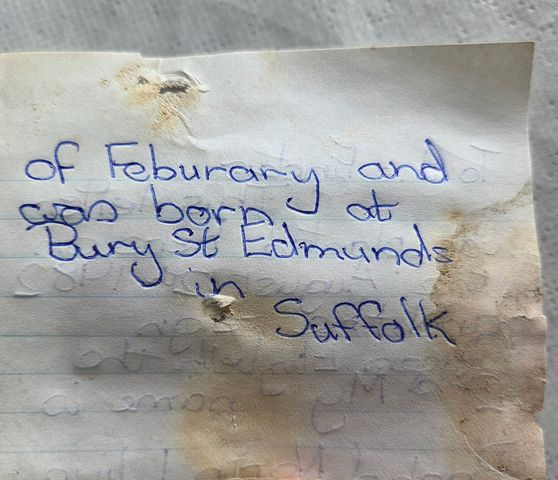 of Feburary and
was born at
Bury St Edmunds
in
Suffolk